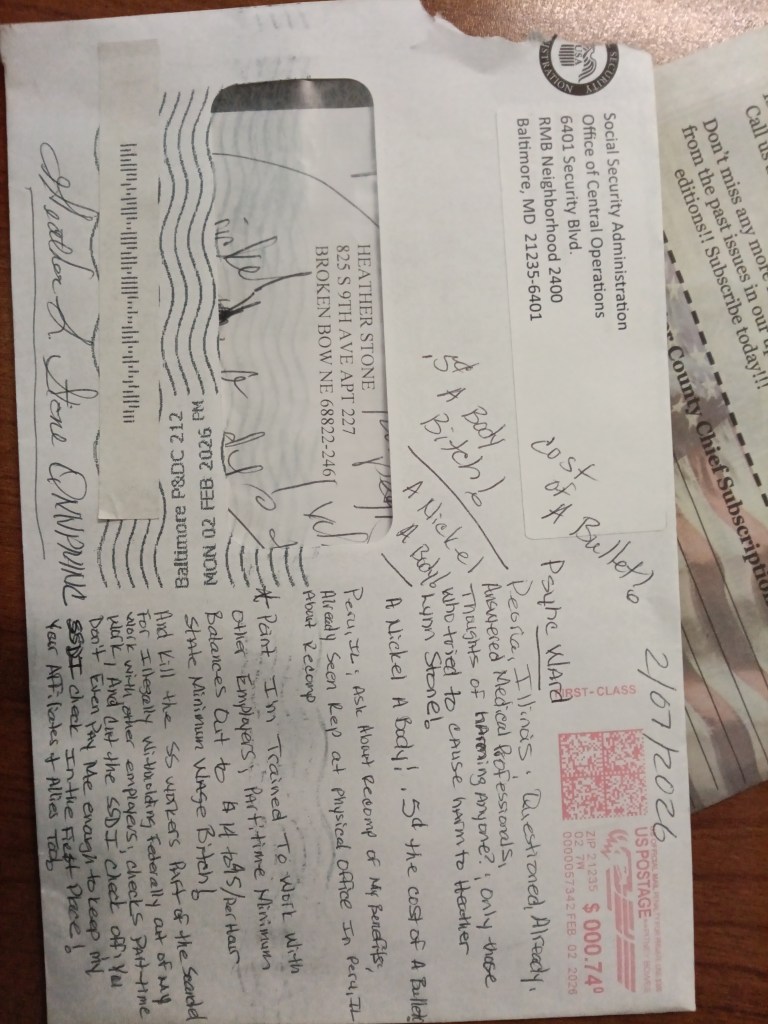 SOCIAL SECURITY
USA
ISTRATION
Social Security Administration
Office of Central Operations
6401 Security Blvd.
RMB Neighborhood 2400
Baltimore, MD 21235-6401
cost
of A Bullet!
2/07/2026
FIRST-CLASS
US POSTAGE
ZIP 21235 $ 000.74⁰
02 7W
0000057342 FEB 02 2026
HEATHER STONE
825 S 9TH AVE APT 227
BROKEN BOW NE 68822-246
Baltimore P&DC 212
MON 02 FEB 2026 PM
.5¢ A Body
Bitch!
A Nickel
A Body!
Psyhc Ward
Peoria, Illinois; Questioned, Already,
Answered Medical Professionals,
Thoughts of harming Anyone?; only those
who tried to cause harm to Heather
Lynn Stone!
A Nickel A Body! .5¢ the cost of A Bullet
Peru, IL; Ask About Recomp of My Benefits,
Already Seen Rep at Physical Office In Peru, IL
About Recomp
* Point I'm Trained To Work With
Other Employers; Part-time Minimum
Balances Out to A 14 to 95/per Hour
State Minimum Wage Bitch!
And Kill the SS workers Part of the Scandel
For Illegally Withholding Federally out of My
work with other employers, checks Part-time
Work! And Cut the SSDI check off; You
Don't Even Pay Me enough to keep my
SSDI check In the First Place!
Your Affiliates & Allies Too!
Heather L Stone
Call us
Don't miss any more
from the past issues in our
editions!! Subscribe today!!!
County Chief Subscription